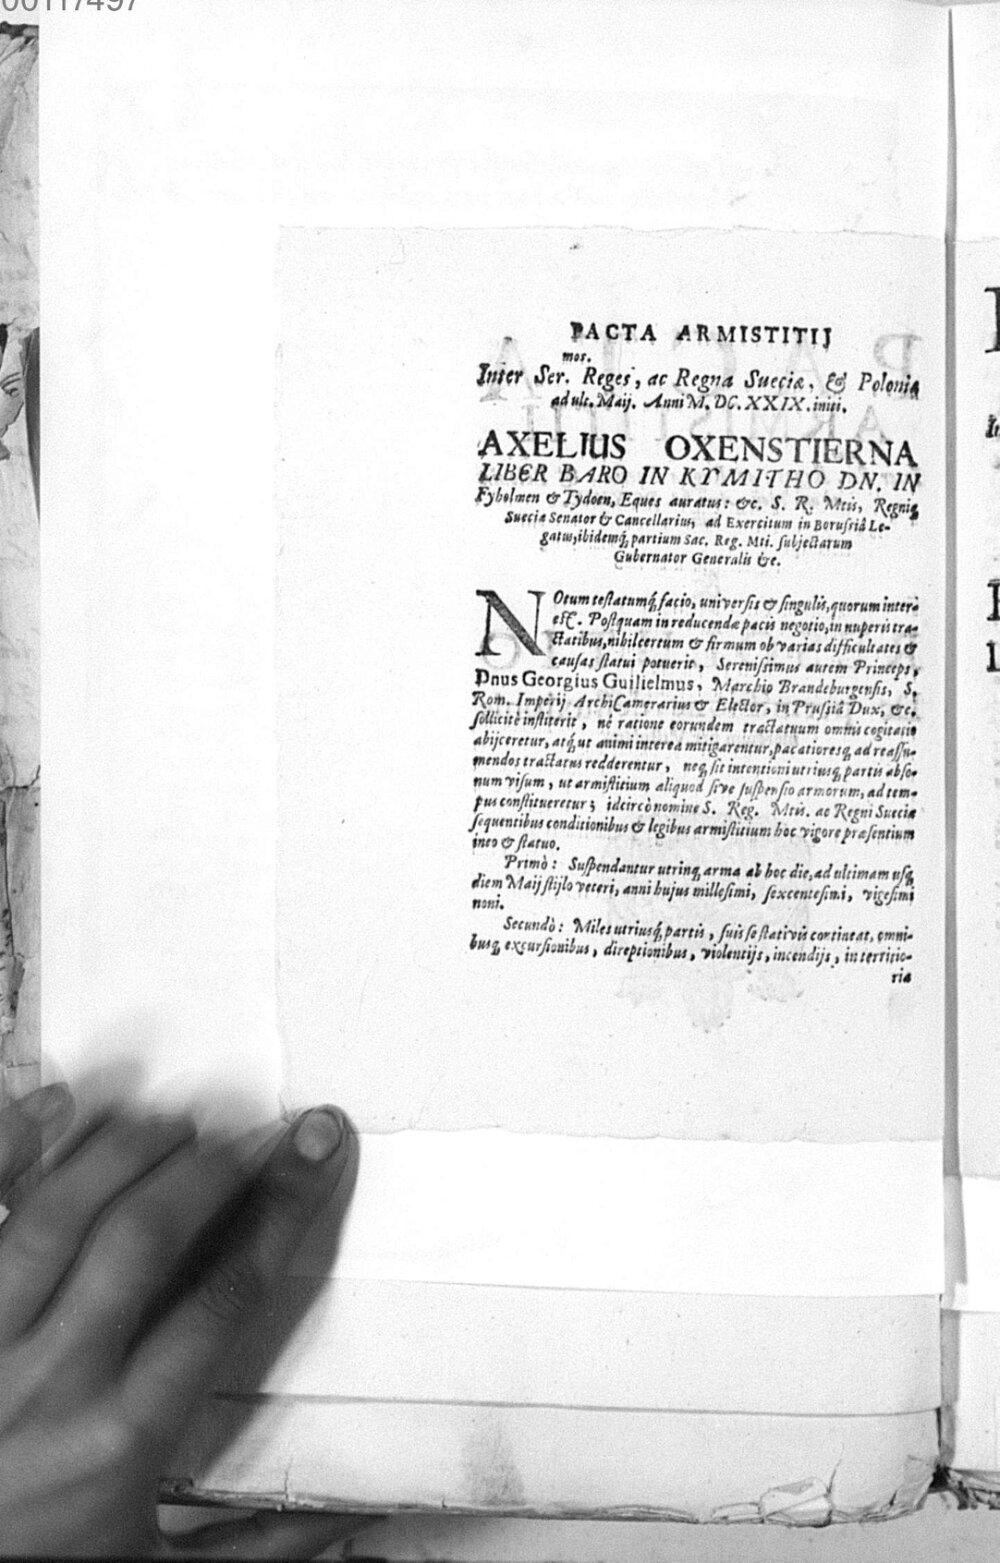 00117497
PACTA ARMISTITIJ
mos.
Inter Ser. Reges, ac Regna Sueciæ, & Poloniæ
ad ult. Maij. Anni M. DC. XXIX. initi.
AXELIUS OXENSTIERNA
LIBER BARO IN KYMITHO DN. IN
Fyholmen & Tydoen, Eques auratus: &c. S. R. Mtis, Regniq;
Sueciæ Senator & Cancellarius, ad Exercitum in Borussiâ Le-
gatus, ibidemq́; partium Sac. Reg. Mti. subjectarum
Gubernator Generalis &c.
NOtum testatumq́; facio, universis & singulis, quorum inter-
est. Postquam in reducendæ pacis negotio, in nuperis tra-
ctatibus, nihil certum & firmum ob varias difficultates &
causas statui potuerit, Serenissimus autem Princeps,
Dnus Georgius Guilielmus, Marchio Brandeburgensis, S.
Rom. Imperij ArchiCamerarius & Elector, in Prussiâ Dux, &c.
sollicitè institerit, nè ratione eorundem tractatuum omnis cogitatio
abijceretur, atq́; ut animi interea mitigarentur, pacatioresq; ad reassu-
mendos tractatus redderentur, neq; sit intentioni utriusq; partis abso-
num visum, ut armistitium aliquod sive suspensio armorum, ad tem-
pus constitueretur; idcircò nomine S. Reg. Mtis. ac Regni Sueciæ
sequentibus conditionibus & legibus armistitium hoc vigore præsentium
ineo & statuo.
Primò: Suspendantur utrinq; arma ab hoc die, ad ultimam usq;
diem Maij stijlo veteri, anni hujus millesimi, sexcentesimi, vigesimi
noni.
Secundò: Miles utriusq́; partis, suis se stativis contineat, omni-
busq; excursionibus, direptionibus, violentijs, incendijs, in territio-
ria